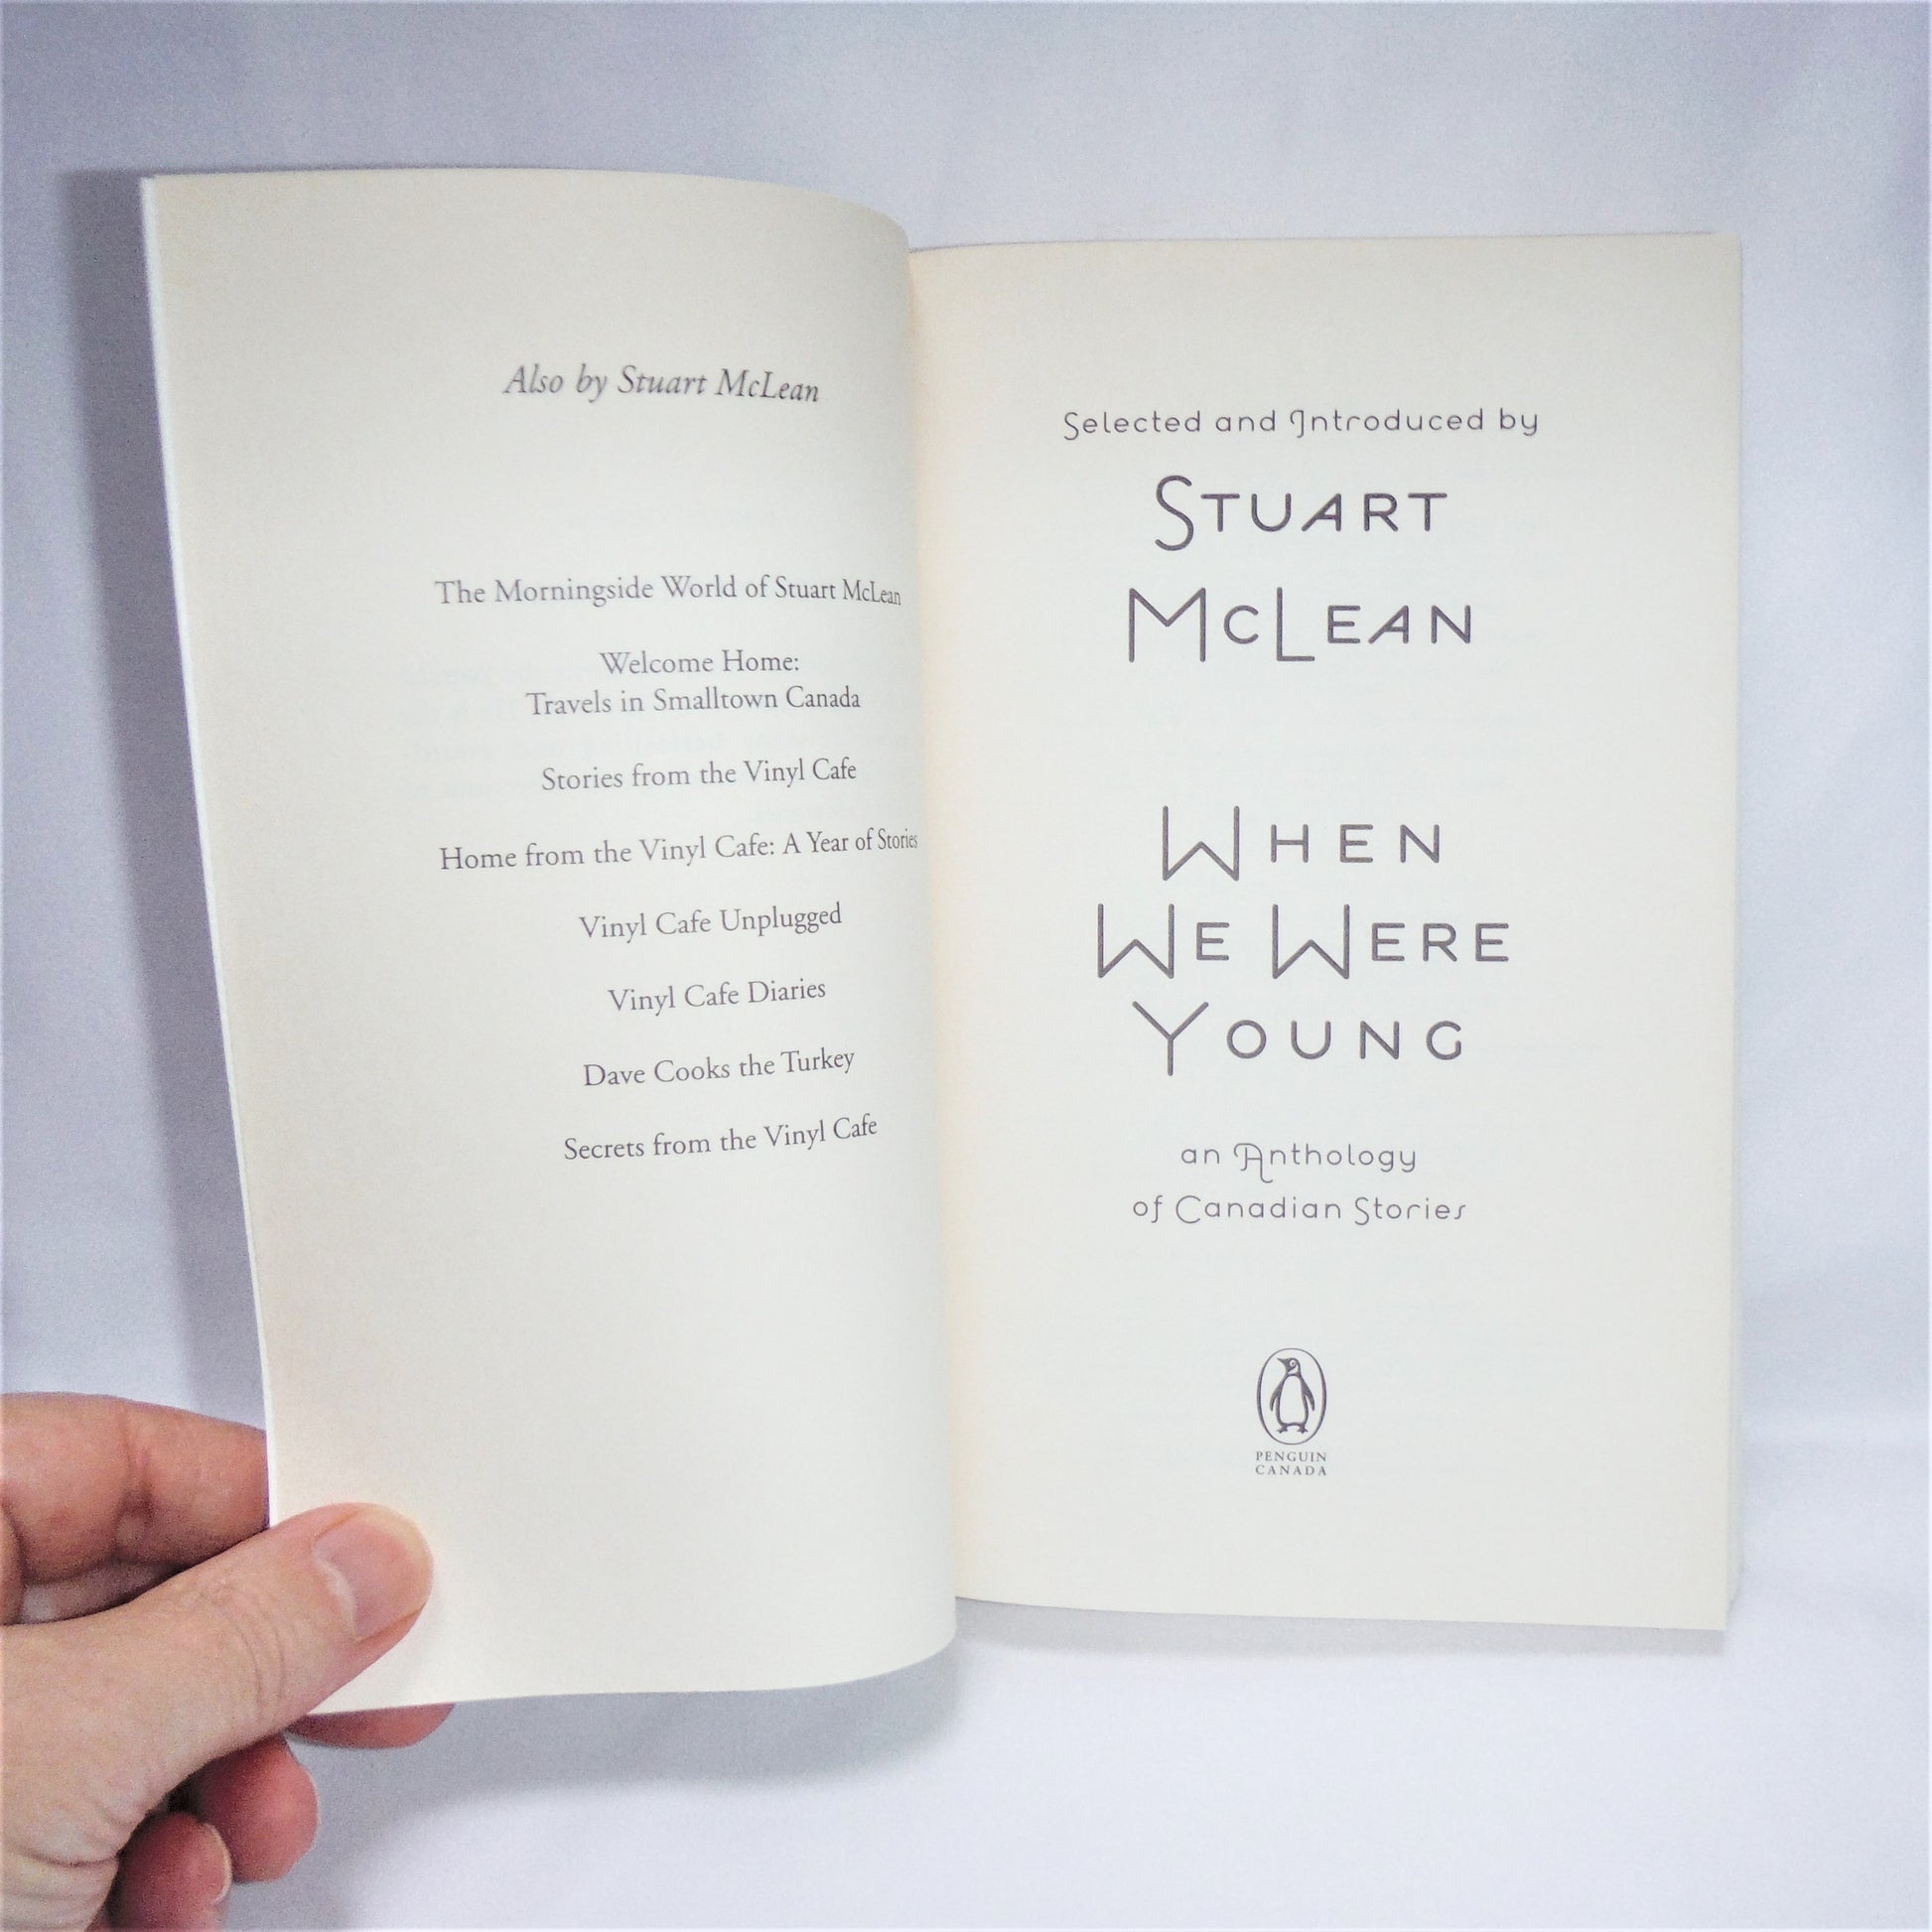 Also by Stuart McLean
The Morningside World of Stuart McLean
Welcome Home:
Travels in Smalltown Canada
Stories from the Vinyl Cafe
Home from the Vinyl Cafe: A Year of Stories
Vinyl Cafe Unplugged
Vinyl Cafe Diaries
Dave Cooks the Turkey
Secrets from the Vinyl Cafe
Selected and Introduced by
STUART
MCLEAN
WHEN
WE WERE
YOUNG
an Anthology
of Canadian Stories
PENGUIN
CANADA